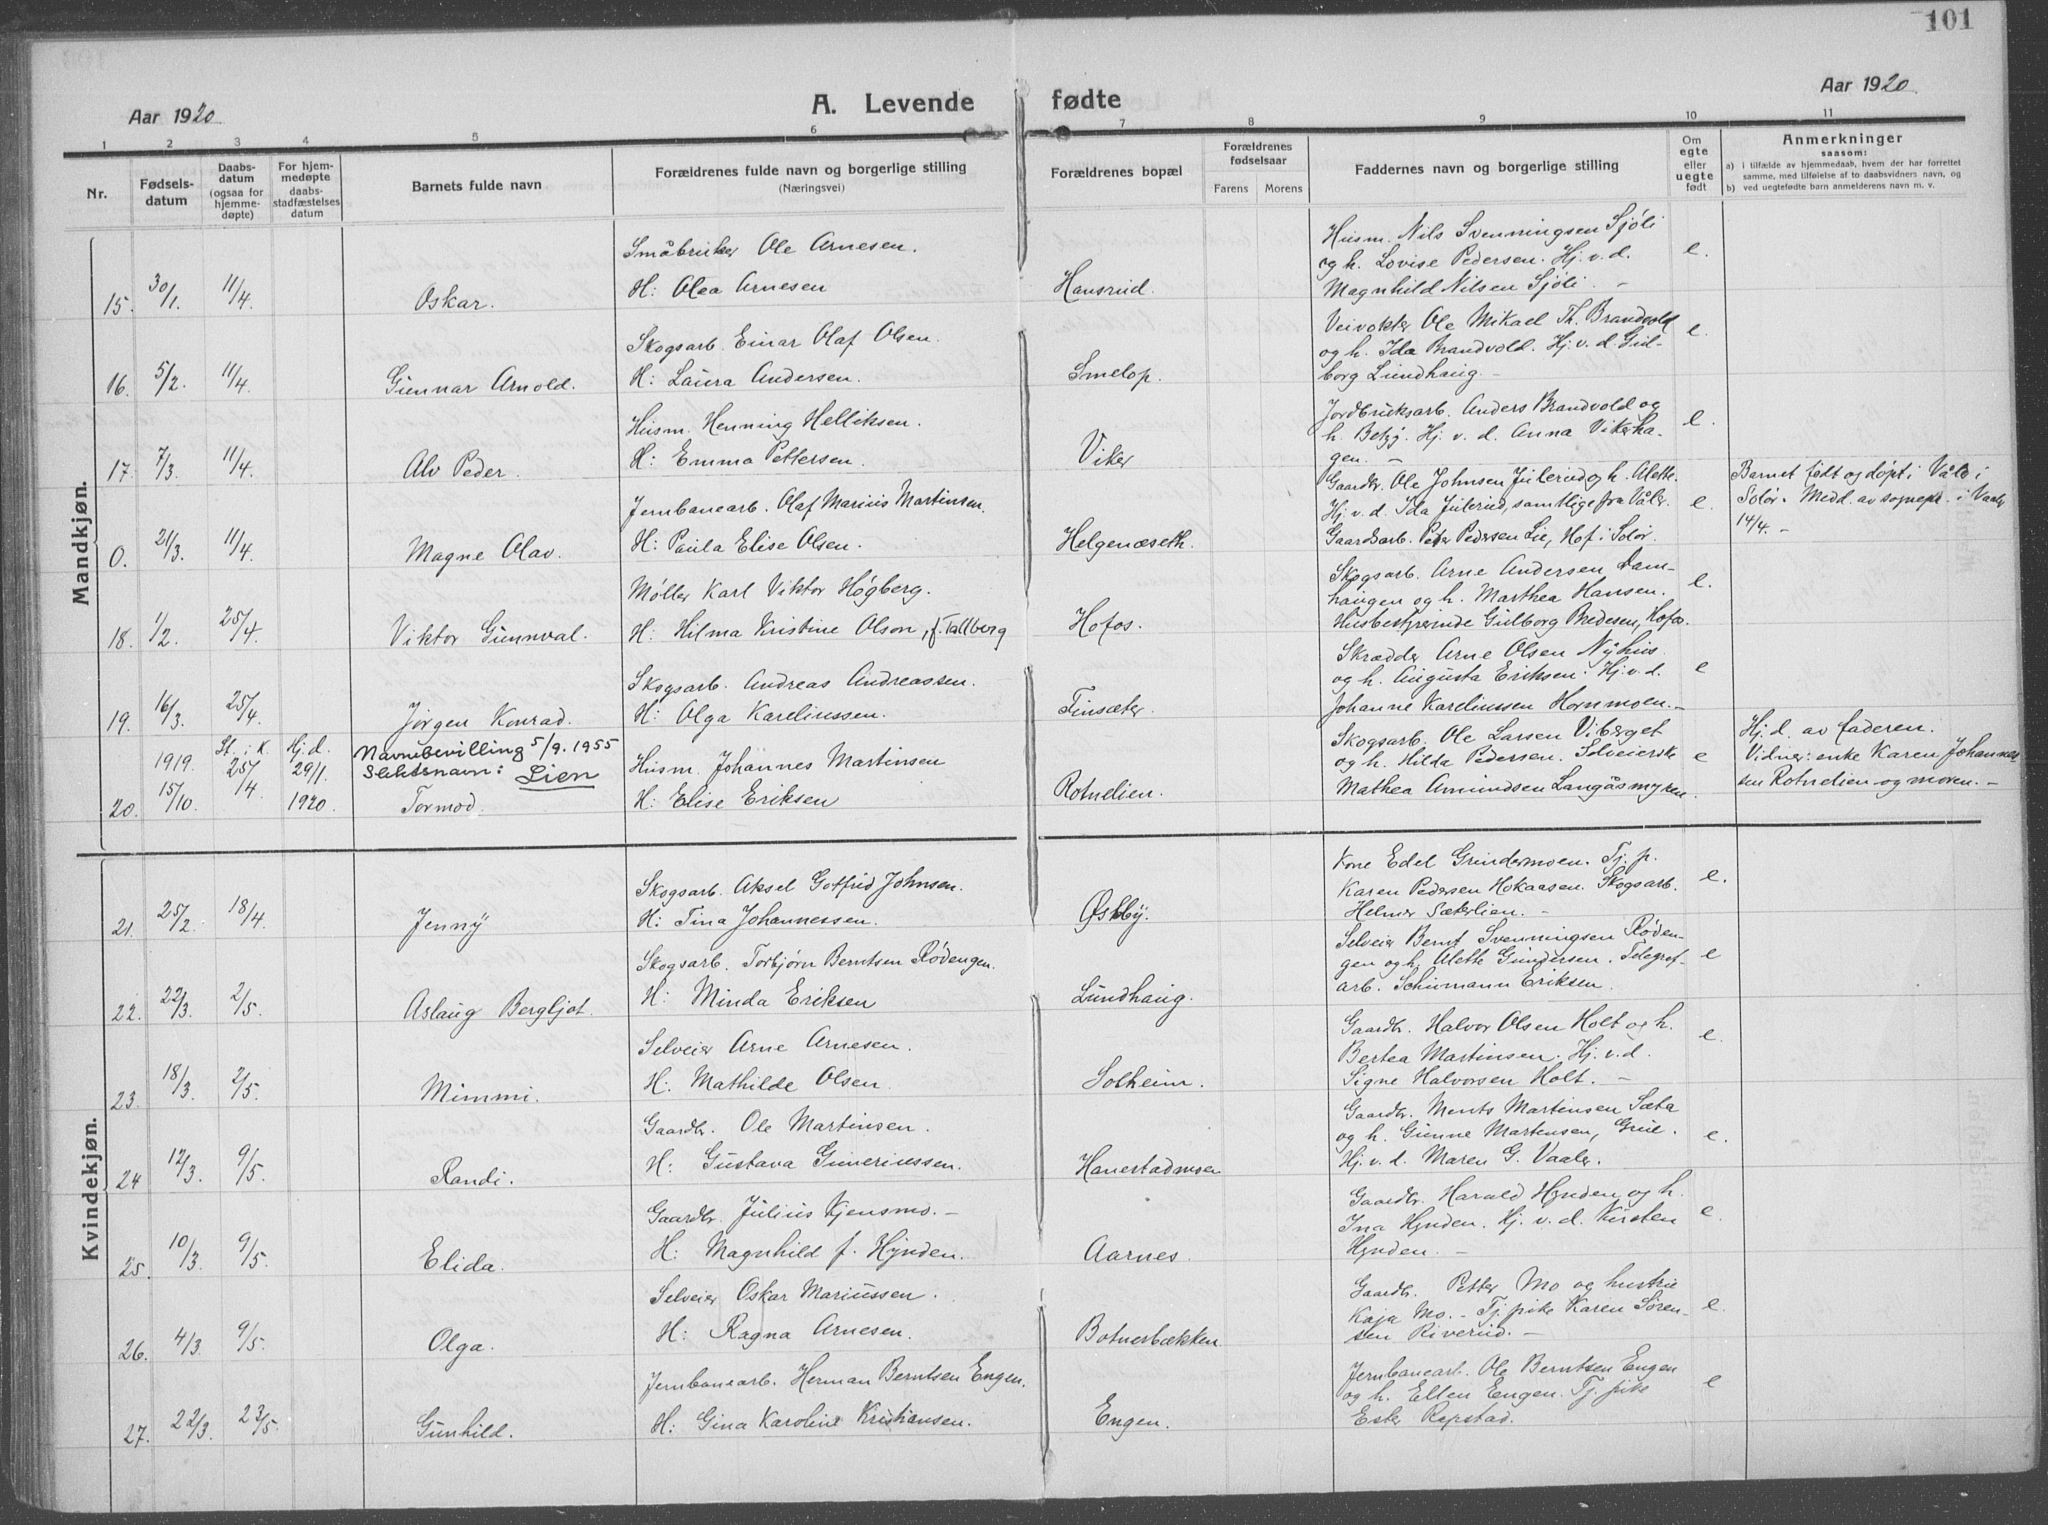 101
Aar 1920
A. Levende fødte
Aar 1920
1 2 3 4 5 6 7 8 9 10 11
Nr.
Fødsels-
datum
Daabs-
datum
(ogsaa for
hjemme-
døpte)
For hjem-
medøpte
daabs-
stadfæstelses
datum
Barnets fulde navn
Forældrenes fulde navn og borgerlige stilling
(Næringsvei)
Forældrenes bopæl
Forældrenes
fødselsaar
Farens Morens
Faddernes navn og borgerlige stilling
Om
egte
eller
uegte
født
Anmerkninger
saasom:
a) i tilfælde av hjemmedaab, hvem der har forrettet
samme, med tilføielse af to daabsvidners navn, og
b) ved uegtefødte barn anmelderens navn m. v.
Mandkjøn.
15. 30/1. 11/4. Oskar.
Småbruker Ole Arnesen.
H: Olea Arnesen
Hansrud.
Husm. Nils Svenningsen Sjøli
og h. Lovise Pedersen. Hj. v. d.
Magnhild Nilsen Sjøli. –
e.
16. 5/2. 11/4. Gunnar Arnold.
Skogsarb. Einar Olaf Olsen.
H: Laura Andersen.
Smelop.
Veivokter Ole Mikael Th. Brandvold
og h. Ida Brandvold. Hj. v. d. Gul-
borg Lundhaug. –
e.
17. 7/3. 11/4. Alv Peder.
Husm. Henning Helliksen.
H: Emma Pettersen.
Viker
Jordbruksarb. Anders Brandvold og
h. Betzy. Hj. v. d. Anna Vikerha-
gen. –
e.
0. 21/3. 11/4. Magne Olav.
Jernbanearb. Olaf Marius Martinsen.
H: Paula Elise Olsen.
Helgenæseth.
Gaardbr. Ole Johnsen Julerud og h. Alette.
Hj. v. d. Ida Julerud, samtlige fra Våler.
Gaardsarb. Peder Pedersen Lie, Hof i Solør.
e.
Barnet født og døpt i Våler i
Solør. Medd. av sognepr. i Vaaler
14/4. –
18. 1/2. 25/4. Viktor Gunnval.
Møller Karl Viktor Högberg.
H: Hilma Kristine Olson, f. Tallberg
Hofos.
Skogsarb. Arne Andersen Dam-
haugen og h. Marthea Hansen.
Husbestyrerinde Gulborg Bredesen, Hofos.
e.
19. 16/3. 25/4. Jørgen Konrad.
Skogsarb. Andreas Andreassen.
H: Olga Kareliussen.
Finsæter
Skrædder Arne Olsen Nyhus
og h. Augusta Eriksen. Hj. v. d.
Johanne Kareliussen Hornmoen. –
e
20. 1919. 15/10. St. i K. 25/4. Hj. d. 29/1. 1920.
Navnebevilling 5/9. 1955
Slektsnavn: Lien
Tormod.
Husm. Johannes Martinsen
H: Elise Eriksen
Rotnelien.
Skogsarb. Ole Larsen Viberget
og h. Hilda Pedersen. Selveierske
Mathea Amundsen Langåsmyren.
e
Hj. d. av faderen.
Vidner: enke Karen Johannes
sen Rotnelien og moren. –
Kvindekjøn.
21. 25/2. 18/4. Jenny
Skogsarb. Aksel Gotfrid Johnsen.
H: Tina Johannessen.
Østby.
Kone Edel Grindermoen. Tj. p.
Karen Pedersen Hokaasen. Skogsarb.
Helmer Sæterlien. –
e.
22. 22/3. 2/5. Aslaug Bergljot.
Skogsarb. Torbjørn Berntsen Rødengen.
H: Minda Eriksen
Lundhaug.
Selveier Bernt Svenningsen Røden-
gen og h. Alette Gundersen. Telegraf-
arb. Schumann Eriksen.
e
23. 18/3. 2/5. Mimmi.
Selveier Arne Arnesen.
H: Mathilde Olsen.
Solheim.
Gaardbr. Halvor Olsen Holt og h.
Bertea Martinsen. Hj. v. d.
Signe Halvorsen Holt. –
e.
24 12/3. 9/5. Randi.
Gaardbr. Ole Martinsen.
H: Gustava Guneriussen.
Hanestadmoen
Gaardbr. Ments Martinsen Sæta
og h. Gunne Martensen, Grue.
Hj. v. d. Maren G. Vaaler.
e.
25. 10/3. 9/5. Elida.
Gaardbr. Julius Kjensmo. –
H: Magnhild f. Hynden.
Aarnes.
Gaardbr. Harald Hynden og h.
Ina Hynden. Hj. v. d. Kirsten
Hynden. –
e.
26. 4/3. 9/5. Olga.
Selveier Oskar Mariussen.
H: Ragna Arnesen.
Botnerbækken
Gaardbr. Petter Mo og hustru
Kaja Mo. – Tj. pike Karen Søren-
sen Riverud. –
e.
27. 22/3. 23/5. Gunhild.
Jernbanearb. Herman Berntsen Engen.
H: Gina Karoline Kristiansen.
Engen.
Jernbanearb. Ole Berntsen Engen
og h. Ellen Engen. Tj. pike
Ester Ropstad.
e